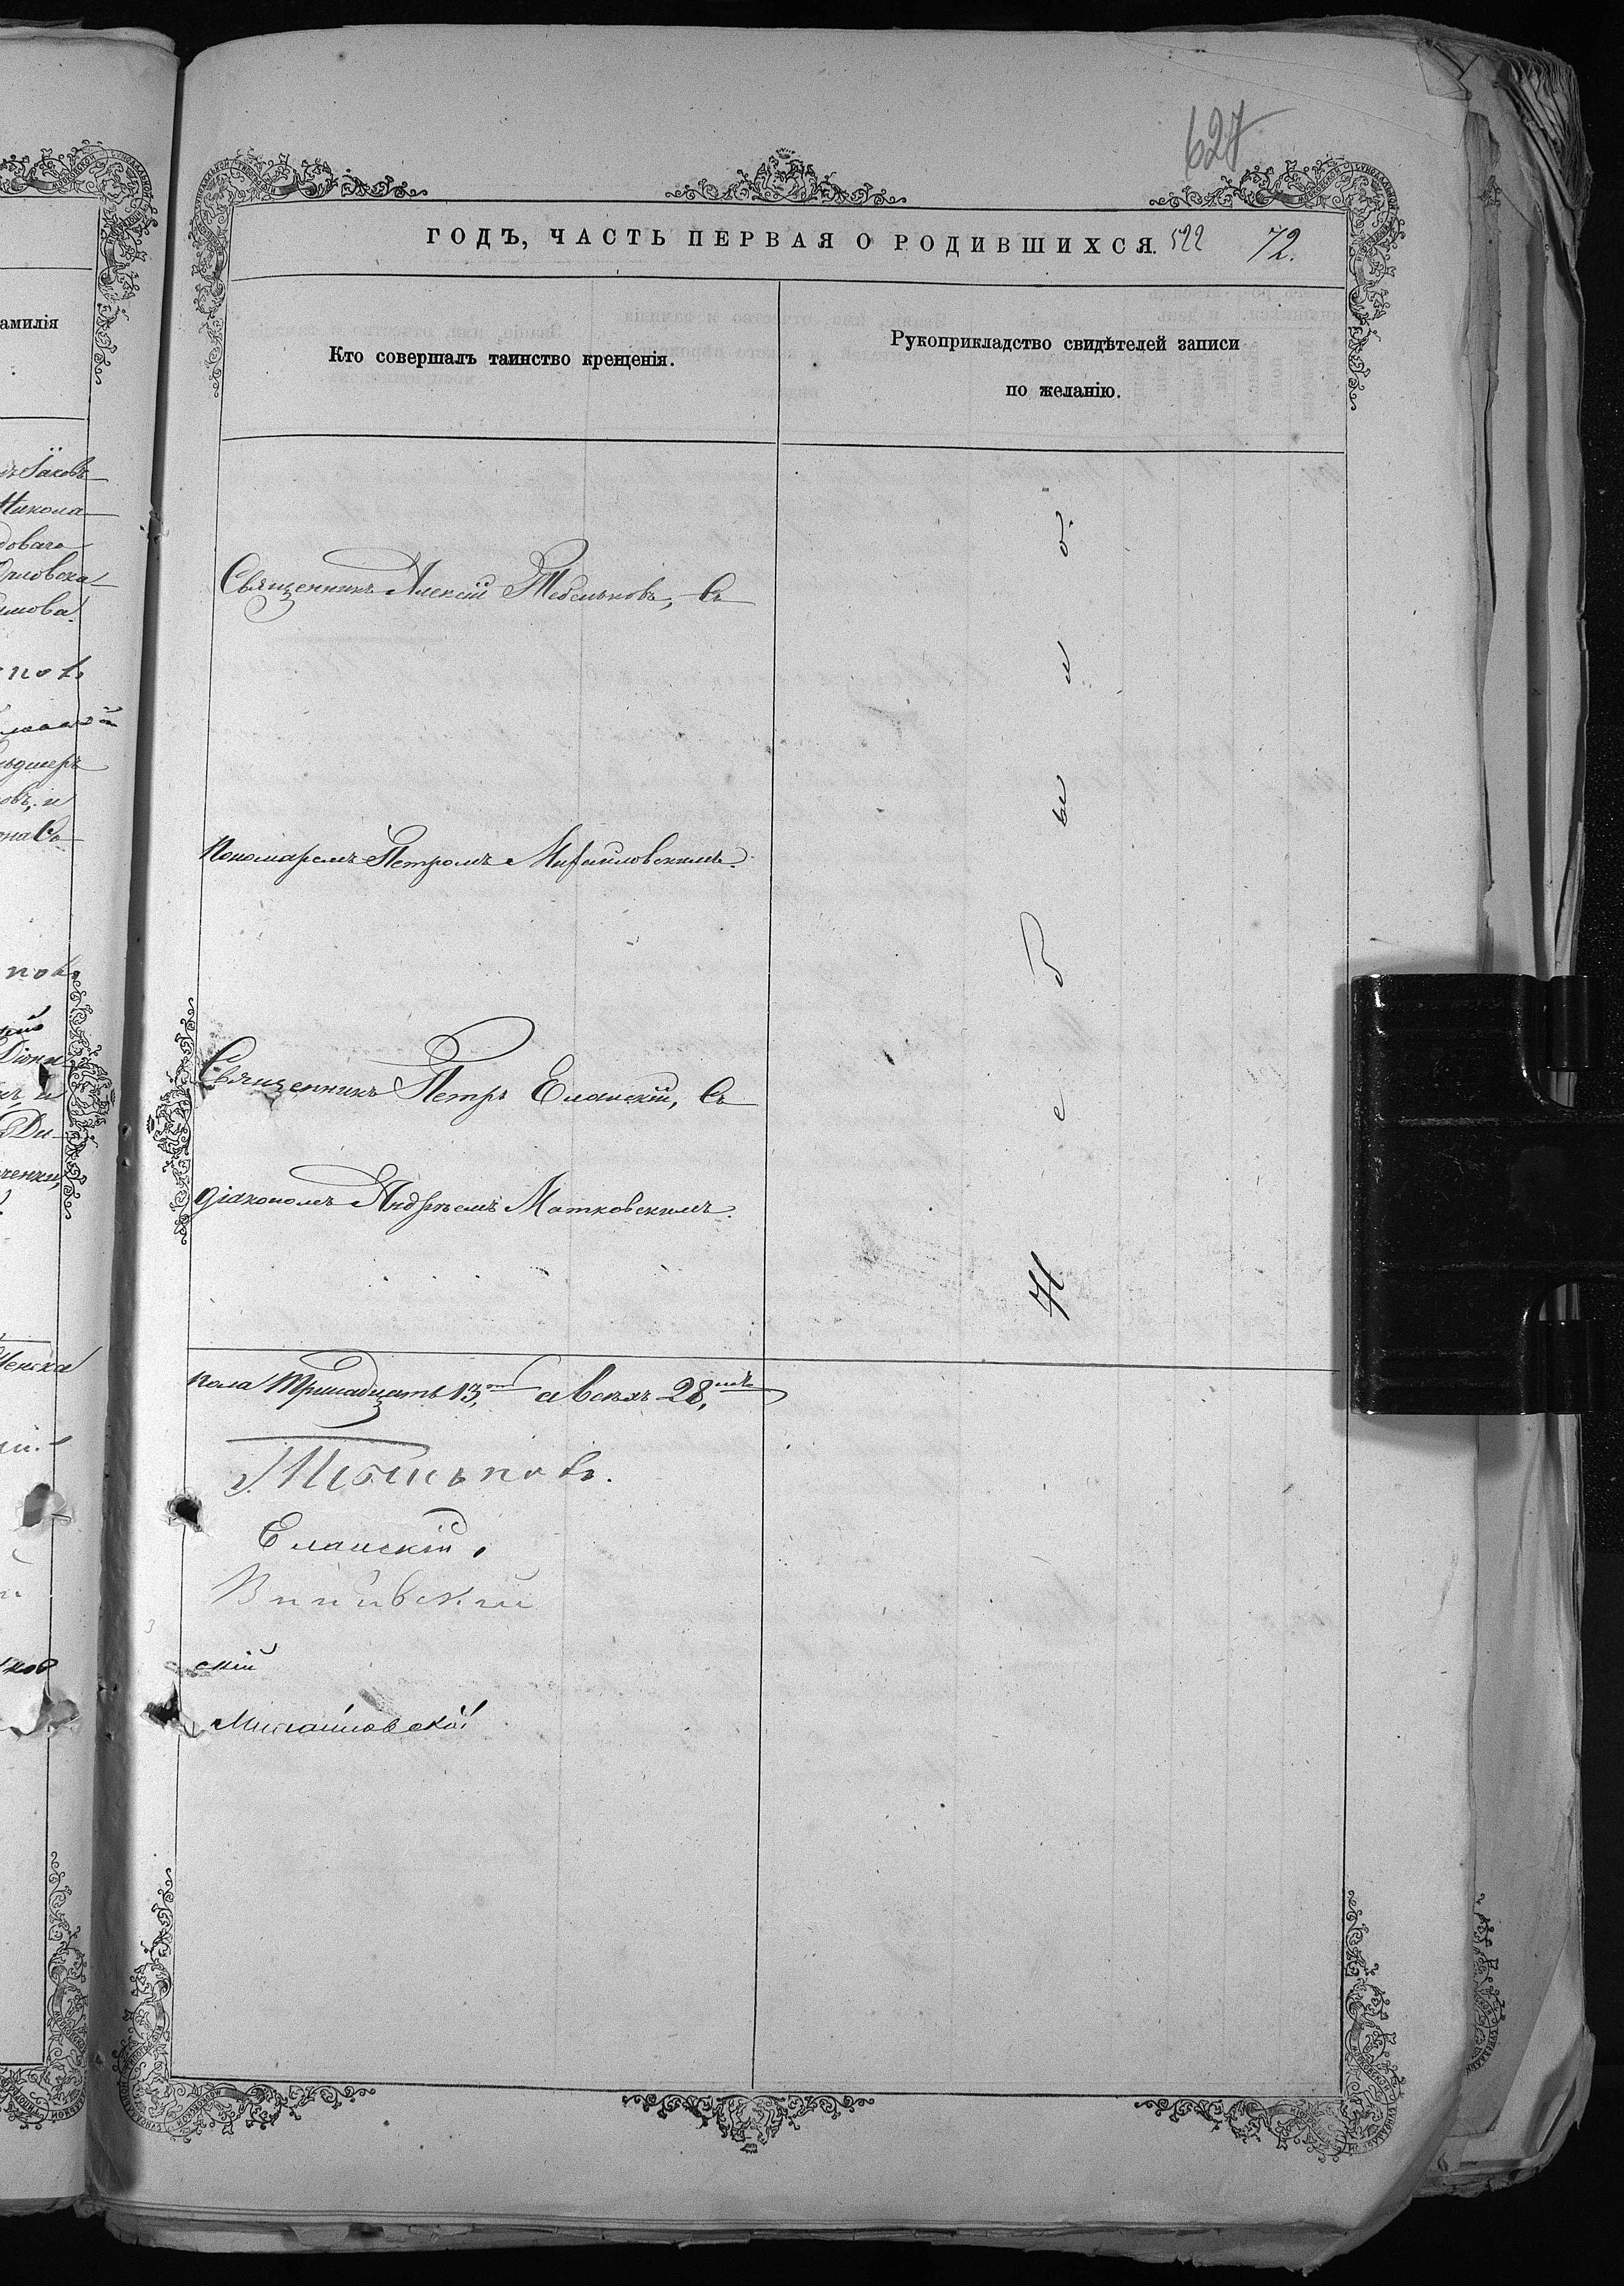 627
ГОДЪ, ЧАСТЬ ПЕРВАЯ О РОДИВШИХСЯ. 522 72.
амилія
Кто совершалъ таинство крещенія.
Рукоприкладство свидѣтелей записи
по желанію.
Іаковъ
Никола
Священникъ Алексій Тебеньковъ, съ
Пономаремъ Петромъ Михайловскимъ.
Священникъ Петръ Еланскій, съ
діакономъ Андреемъ Матковскимъ.
Не было.
пола тринадцать 13, а всѣхъ 28,
Тебеньковъ.
Еланскій,
скій
Михайловскій